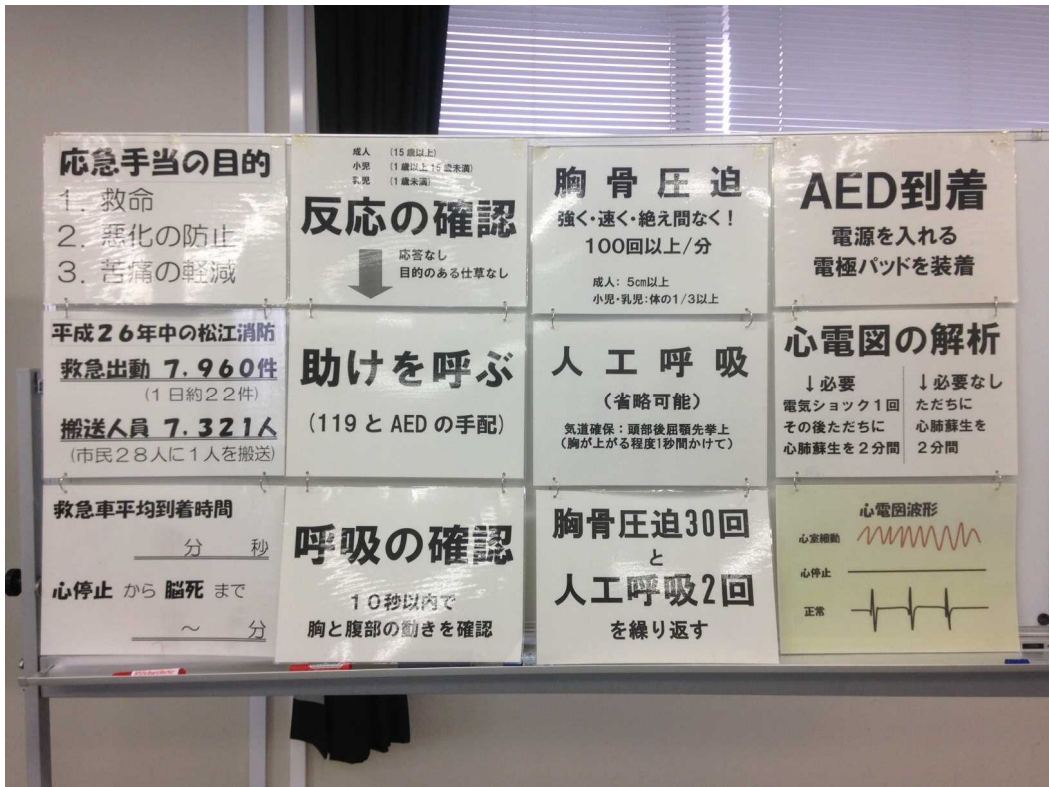 応急手当の目的
1. 救命
2. 悪化の防止
3. 苦痛の軽減
平成26年中の松江消防
救急出動 7.960件
(1日約22件)
搬送人員 7.321人
(市民28人に1人を搬送)
救急車平均到着時間
分 秒
心停止 から 脳死 まで
～ 分
成人 (15歳以上)
小児 (1歳以上15歳未満)
乳児 (1歳未満)
反応の確認
応答なし
目的のある仕草なし
助けを呼ぶ
(119とAEDの手配)
呼吸の確認
10秒以内で
胸と腹部の動きを確認
胸骨圧迫
強く・速く・絶え間なく！
100回以上/分
成人：5cm以上
小児・乳児：体の1/3以上
人工呼吸
(省略可能)
気道確保：頭部後屈顎先挙上
(胸が上がる程度1秒間かけて)
胸骨圧迫30回
と
人工呼吸2回
を繰り返す
AED到着
電源を入れる
電極パッドを装着
心電図の解析
↓必要
電気ショック1回
その後ただちに
心肺蘇生を2分間
↓必要なし
ただちに
心肺蘇生を
2分間
心電図波形
心室細動
心停止
正常